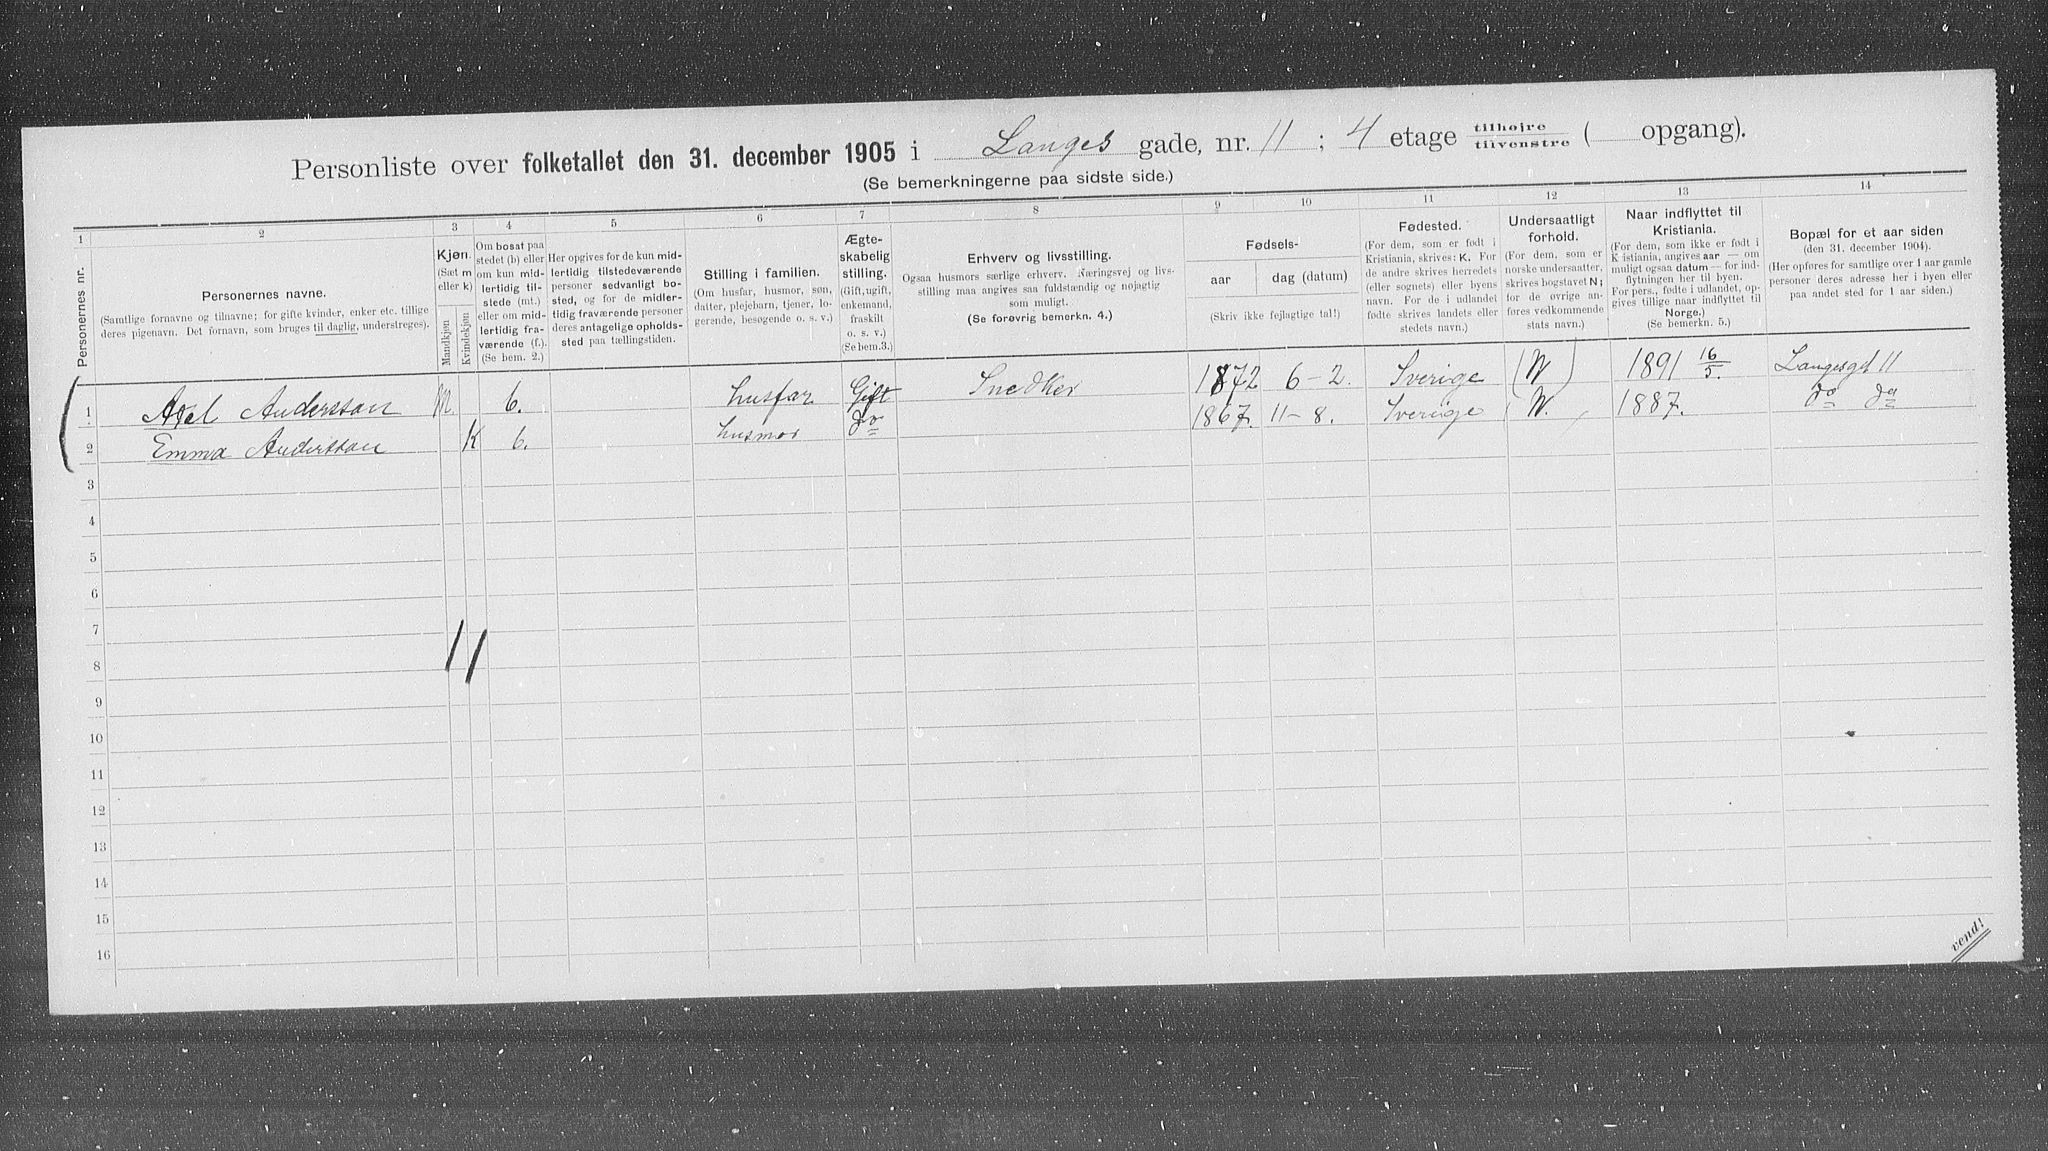 Personliste over folketallet den 31. december 1905 i Langes gade, nr. 11 ; 4 etage tilhøjre tilvenstre ( opgang).
(Se bemerkningerne paa sidste side.)
1 2 3 4 5 6 7 8 9 10 11 12 13 14
Personernes nr.
Personernes navne.
(Samtlige fornavne og tilnavne; for gifte kvinder, enker etc. tillige
deres pigenavn. Det fornavn, som bruges til daglig, understreges).
Kjøn.
(Sæt m
eller k)
Mandkjøn
Kvindekjøn
Om bosat paa
stedet (b) eller
om kun mid-
lertidig til-
stede (mt.)
eller om mid-
lertidig fra-
værende (f.).
(Se bem. 2.)
Her opgives for de kun mid-
lertidig tilstedeværende
personer sedvanligt bo-
sted, og for de midler-
tidig fraværende personer
deres antagelige opholds-
sted paa tællingstiden.
Stilling i familien.
(Om husfar, husmor, søn,
datter, plejebarn, tjener, lo-
gerende, besøgende o. s. v.)
Ægte-
skabelig
stilling.
(Gift, ugift,
enkemand,
fraskilt
o. s. v.)
(Se bem. 3.)
Erhverv og livsstilling.
Ogsaa husmors særlige erhverv. Næringsvej og livs-
stilling maa angives saa fuldstændig og nøjagtig
som muligt.
(Se forøvrig bemerkn. 4.)
Fødsels-
aar dag (datum)
(Skriv ikke fejlagtige tal!)
Fødested.
(For dem, som er født i
Kristiania, skrives: K. For
de andre skrives herredets
(eller sognets) eller byens
navn. For de i udlandet
fødte skrives landets eller
stedets navn.)
Undersaatligt
forhold.
(For dem, som er
norske undersaatter,
skrives bogstavet N;
for de øvrige an-
føres vedkommende
stats navn.)
Naar indflyttet til
Kristiania.
(For dem, som ikke er født i
Kristiania, angives aar — om
muligt ogsaa datum — for ind-
flytningen her til byen.
For pers., fødte i udlandet, op-
gives tillige naar indflyttet til
Norge.)
(Se bemerkn. 5.)
Bopæl for et aar siden
(den 31. december 1904).
(Her opføres for samtlige over 1 aar gamle
personer deres adresse her i byen eller
paa andet sted for 1 aar siden.)
1 Axel Andersson M b. husfar Gift Snedker 1872 6-2. Sverige (N) 1891 16/5. Langesgd 11
2 Emma Andersson K b. husmor do 1867. 11-8. Sverige N. 1887. do do
3
4
5
6
7
8
9
10
11
12
13
14
15
16
vend!